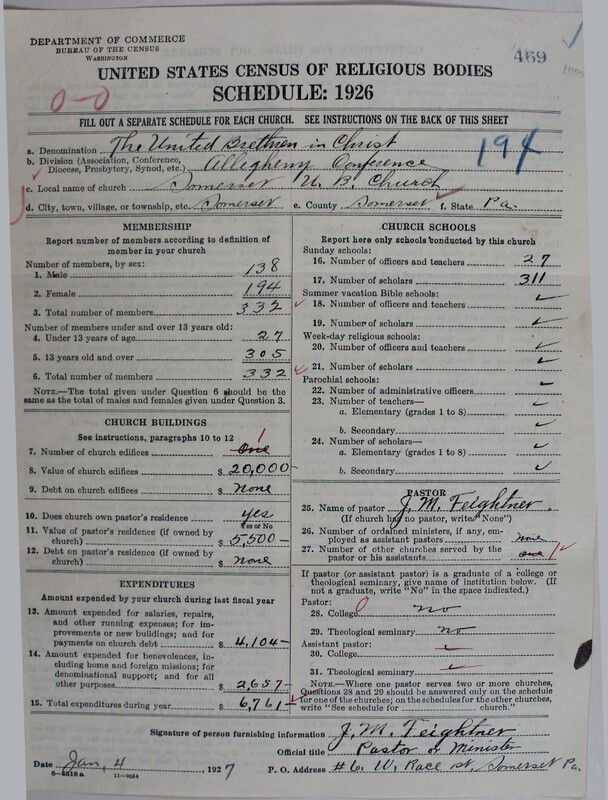 DEPARTMENT OF COMMERCE
BUREAU OF THE CENSUS
WASHINGTON
469
UNITED STATES CENSUS OF RELIGIOUS BODIES
SCHEDULE: 1926
0-0
FILL OUT A SEPARATE SCHEDULE FOR EACH CHURCH. SEE INSTRUCTIONS ON THE BACK OF THIS SHEET
194
a. Denomination The United Brethren in Christ
b. Division (Association, Conference, Diocese, Presbytery, Synod, etc.) Allegheny Conference
c. Local name of church Somerset U. B. Church
d. City, town, village, or township, etc. Somerset e. County Somerset f. State Pa.
MEMBERSHIP
Report number of members according to definition of
member in your church
Number of members, by sex:
1. Male 138
2. Female 194
3. Total number of members 332
Number of members under and over 13 years old:
4. Under 13 years of age 27
5. 13 years old and over 305
6. Total number of members 332
NOTE.—The total given under Question 6 should be
same as the total of males and females given under Question 3.
CHURCH BUILDINGS
See instructions, paragraphs 10 to 12
7. Number of church edifices One 1
8. Value of church edifices $ 20,000-
9. Debt on church edifices $ None
10. Does church own pastor's residence yes
Yes or No
11. Value of pastor's residence (if owned by
church) $ 5,500-
12. Debt on pastor's residence (if owned by
church) $ None
EXPENDITURES
Amount expended by your church during last fiscal year
13. Amount expended for salaries, repairs,
and other running expenses; for im-
provements or new buildings; and for
payments on church debt $ 4,104-
14. Amount expended for benevolences, in-
cluding home and foreign missions; for
denominational support; and for all
other purposes $ 2,657-
15. Total expenditures during year $ 6,761-
CHURCH SCHOOLS
Report here only schools conducted by this church
Sunday schools:
16. Number of officers and teachers 27
17. Number of scholars 311
Summer vacation Bible schools:
18. Number of officers and teachers
19. Number of scholars
Week-day religious schools:
20. Number of officers and teachers
21. Number of scholars
Parochial schools:
22. Number of administrative officers
23. Number of teachers—
a. Elementary (grades 1 to 8)
b. Secondary
24. Number of scholars—
a. Elementary (grades 1 to 8)
b. Secondary
PASTOR
25. Name of pastor J. M. Feightner.
(If church has no pastor, write "None")
26. Number of ordained ministers, if any, em-
ployed as assistant pastors None
27. Number of other churches served by the
pastor or his assistants one 1
If pastor (or assistant pastor) is a graduate of a college or
theological seminary, give name of institution below. (If
not a graduate, write "No" in the space indicated.)
Pastor:
28. College 0 no
29. Theological seminary no
Assistant pastor:
30. College
31. Theological seminary
NOTE.—Where one pastor serves two or more churches,
Questions 28 and 29 should be answered only on the schedule
for one of the churches; on the schedules for the other churches,
write "See schedule for church."
Signature of person furnishing information J. M. Feightner
Official title Pastor or Minister
Date Jan, 4 1927 P. O. Address #6. W. Race st, Somerset Pa.
8-5518a 11-9064